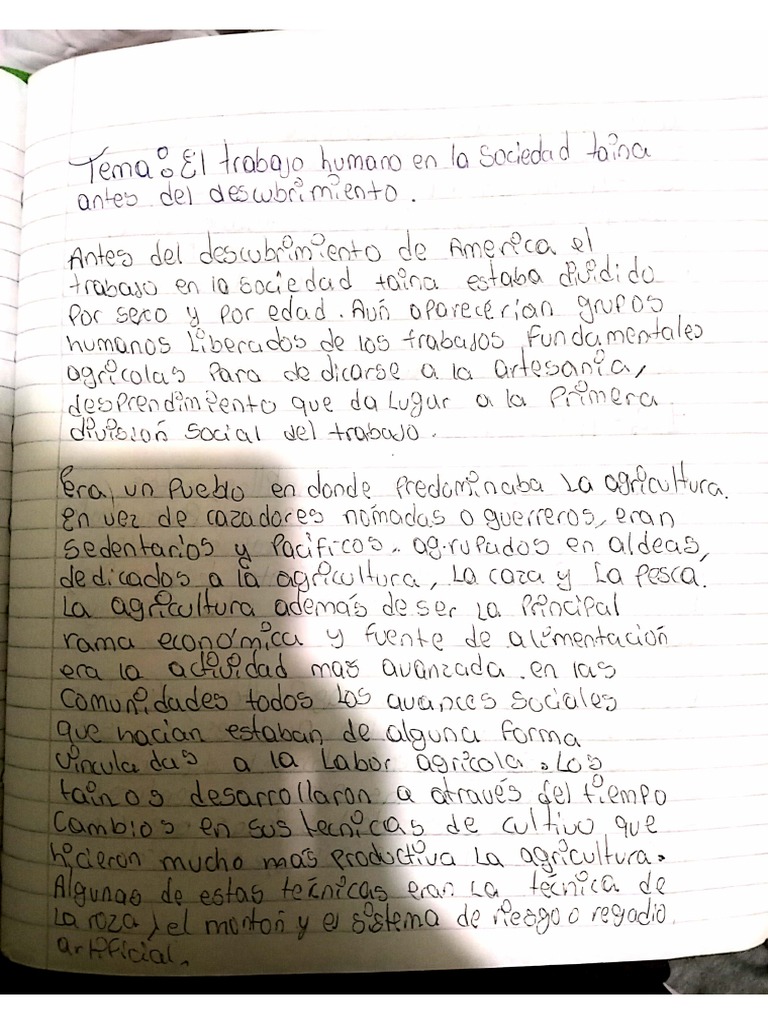 Tema: El trabajo humano en la sociedad taina
antes del descubrimiento.
Antes del descubrimiento de America el
trabajo en la sociedad taina estaba dividido
por sexo y por edad. Aún aparecerían grupos
humanos liberados de los trabajos fundamentales
agricolas para dedicarse a la artesania,
desprendimiento que da lugar a la primera
división social del trabajo.
Era, un pueblo en donde predominaba la agricultura.
En vez de cazadores nómadas o guerreros, eran
sedentarios y pacificos. agrupados en aldeas,
dedicados a la agricultura, la caza y la pesca.
La agricultura además de ser la principal
rama económica y fuente de alimentación
era la actividad más avanzada en las
comunidades todos los avances sociales
que hacian estaban de alguna forma
vinculadas a la labor agricola. Los
tainos desarrollaron a através del tiempo
cambios en sus tecnicas de cultivo que
hicieron mucho más productiva la agricultura.
Algunas de estas técnicas eran la técnica de
la roza, el montón y el sistema de riesgo o regadio
artificial.